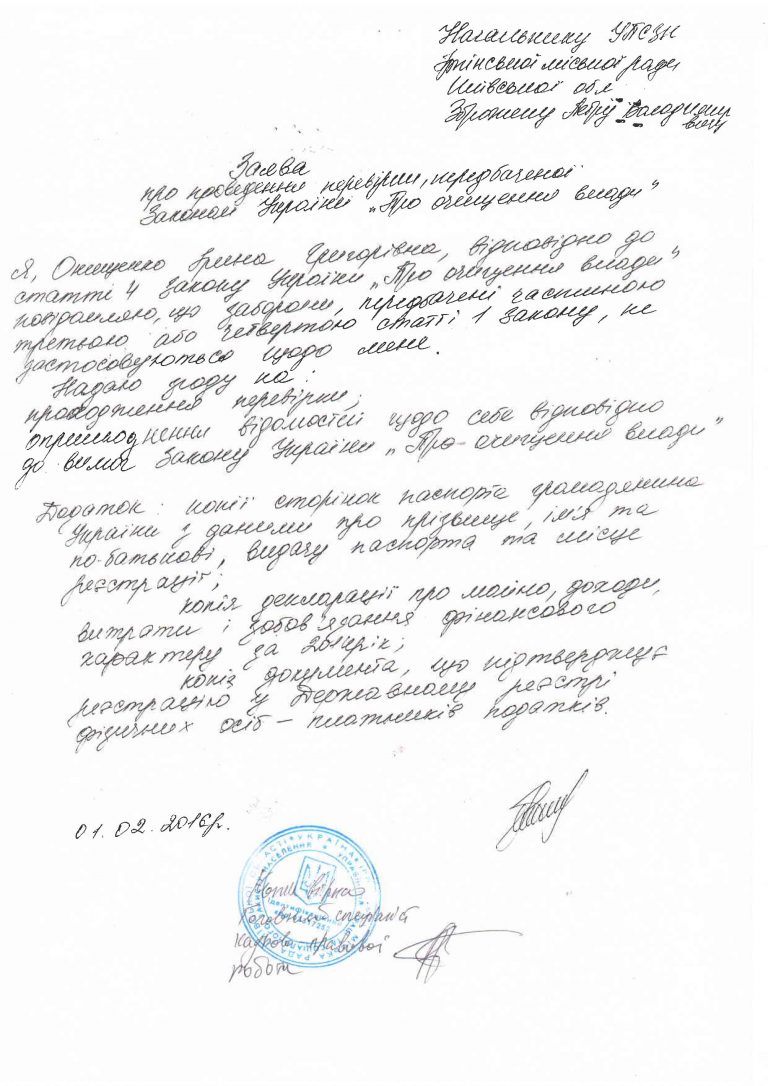 Начальнику УПСЗН
Ірпінської міської ради
Київської обл
Зброжеку Петру Володимир
вичу
Заява
про проведення перевірки, передбаченої
Законом України „Про очищення влади"
Я, Онищенко Ірина Григорівна, відповідно до
статті 4 Закону України „Про очищення влади"
повідомляю, що заборони, передбачені частиною
третьою або четвертою статті 1 Закону, не
застосовуються щодо мене.
Надаю згоду на:
проходження перевірки;
оприлюднення відомостей щодо себе відповідно
до вимог Закону України „Про очищення влади"
Додаток: копії сторінок паспорта громадянина
України з даними про прізвище, ім'я та
по-батькові, видачу паспорта та місце
реєстрації;
копія декларації про майно, доходи,
витрати і зобов'язання фінансового
характеру за 2014рік;
копія документа, що підтверджує
реєстрацію у Державному реєстрі
фізичних осіб – платників податків.
01.02.2016р.
вірна
Головний спеціаліст
кадрової
роботи